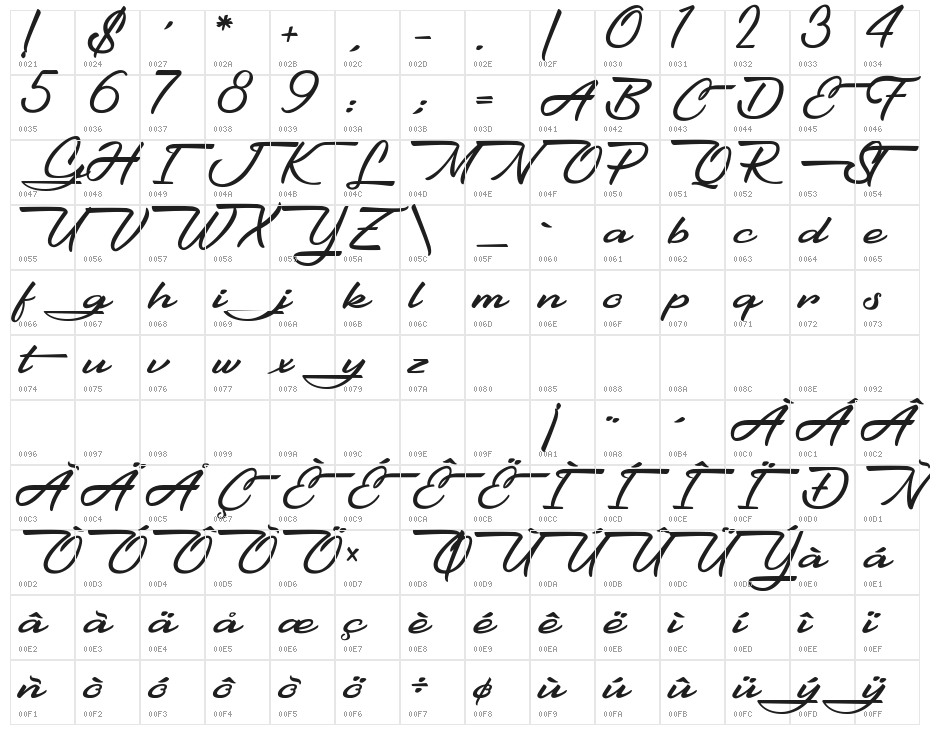 ! $ ' * + , - . / 0 1 2 3 4
0021 0024 0027 002A 002B 002C 002D 002E 002F 0030 0031 0032 0033 0034
5 6 7 8 9 : ; = A B C D E F
0035 0036 0037 0038 0039 003A 003B 003D 0041 0042 0043 0044 0045 0046
G H I J K L M N O P Q R S T
0047 0048 0049 004A 004B 004C 004D 004E 004F 0050 0051 0052 0053 0054
U V W X Y Z \ _ ` a b c d e
0055 0056 0057 0058 0059 005A 005C 005F 0060 0061 0062 0063 0064 0065
f g h i j k l m n o p q r s
0066 0067 0068 0069 006A 006B 006C 006D 006E 006F 0070 0071 0072 0073
t u v w x y z
0074 0075 0076 0077 0078 0079 007A 0080 0085 0088 008A 008C 008E 0092
¡ ¨ ´ À Á Â
0096 0097 0098 0099 009A 009C 009E 009F 00A1 00A8 00B4 00C0 00C1 00C2
Ã Ä Å Ç È É Ê Ë Ì Í Î Ï Ð Ñ
00C3 00C4 00C5 00C7 00C8 00C9 00CA 00CB 00CC 00CD 00CE 00CF 00D0 00D1
Ò Ó Ô Õ Ö × Ø Ù Ú Û Ü Ý à á
00D2 00D3 00D4 00D5 00D6 00D7 00D8 00D9 00DA 00DB 00DC 00DD 00E0 00E1
â ã ä å æ ç è é ê ë ì í î ï
00E2 00E3 00E4 00E5 00E6 00E7 00E8 00E9 00EA 00EB 00EC 00ED 00EE 00EF
ñ ò ó ô õ ö ÷ ø ù ú û ü ý ÿ
00F1 00F2 00F3 00F4 00F5 00F6 00F7 00F8 00F9 00FA 00FB 00FC 00FD 00FF